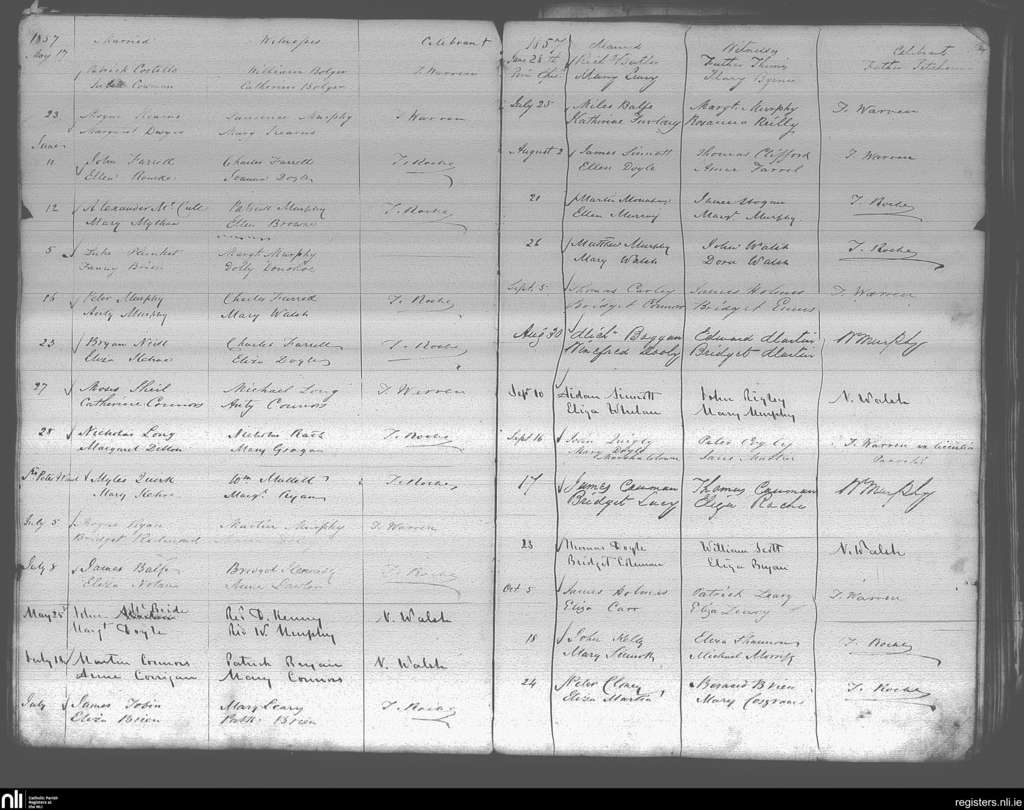 1857 Married Witnesses Celebrant
May 17
Patrick Costello William Bolger T. Warren
Cowman Catherine Bolger
23 Kearns Laurence Murphy T Warren
Margaret Dwyer Mary Kearns
June
11 John Farrell Charles Farrell T. Roche
Ellen Rourke Joanna Doyle
12 Alexander Mc Patrick Murphy T. Roche
Mary Mythen Ellen Browne
5 Luke Plunket Margt Murphy
Fanny Brien Dolly Donohoe
16 Peter Murphy Charles Farrell T. Roche
Anty Murphy Mary Walsh
23 Bryan Neill Charles Farrell T. Roche
Eliza Kehoe Eliza Doyle
27 Moses Sheil Michael Long T. Warren
Catherine Connors Anty Connors
28 Nicholas Long Nicholas Rath T. Roche
Margaret Mary Grogan
Myles Quirk Wm T. Roche
Mary Kehoe Margt Ryan
July 5 Ryan Martin Murphy T. Warren
Bridget Redmond
July 8 James Balfe Bridget Kennedy T. Roche
Eliza Nolan Anne Lawlor
May 25 John McBride Revd D. Kenny N. Walsh
Margt Doyle Rev W Murphy
July 16 Martin Connors Patrick Bryan N. Walsh
Anne Corrigan Mary Connors
July James Tobin Mary Leary T. Roche
Eliza Brien Brien
1857 Married Witnesses Celebrant
June 28th Richd Butler Father
Mary Leary Mary Byrne
July 25 Miles Balfe Margt. Murphy T. Warren
Katharine Furlong Rosanna Reilly
August 2 James Sinnott Thomas Clifford T. Warren
Ellen Doyle Anne Farrel
21 Martin James Hogan T. Roche
Ellen Murray Margt Murphy
26 Matthew Murphy John Walsh T. Roche
Mary Walsh Dora Walsh
Sept. 5 Thomas Curley James Holmes T. Warren
Bridget Connor Bridget Ennis
Aug 30 Mich. Boggan Edward Martin W Murphy
Bridget Martin
Sept 10 Aidan Sinnott John Rigley N. Walsh
Eliza Whelan Mary Murphy
Sept 16 Quigly Peter T. Warren
Mary Doyle
17 James Cowman Thomas Cowman W Murphy
Bridget Lacy Eliza Roche
23 Thomas Doyle William Scott N. Walsh
Bridget Coleman Eliza Bryan
Oct 5 James Holmes Patrick Leary T. Warren
Eliza Carr Eliza Leary
18 John Kelly Eliza T. Roche
Mary Sinnott Michael
24 Peter Cloney Bernard Brien T. Roche
Eliza Martin Mary Cosgrave
nli
Catholic Parish
Registers at
the NLI
registers.nli.ie